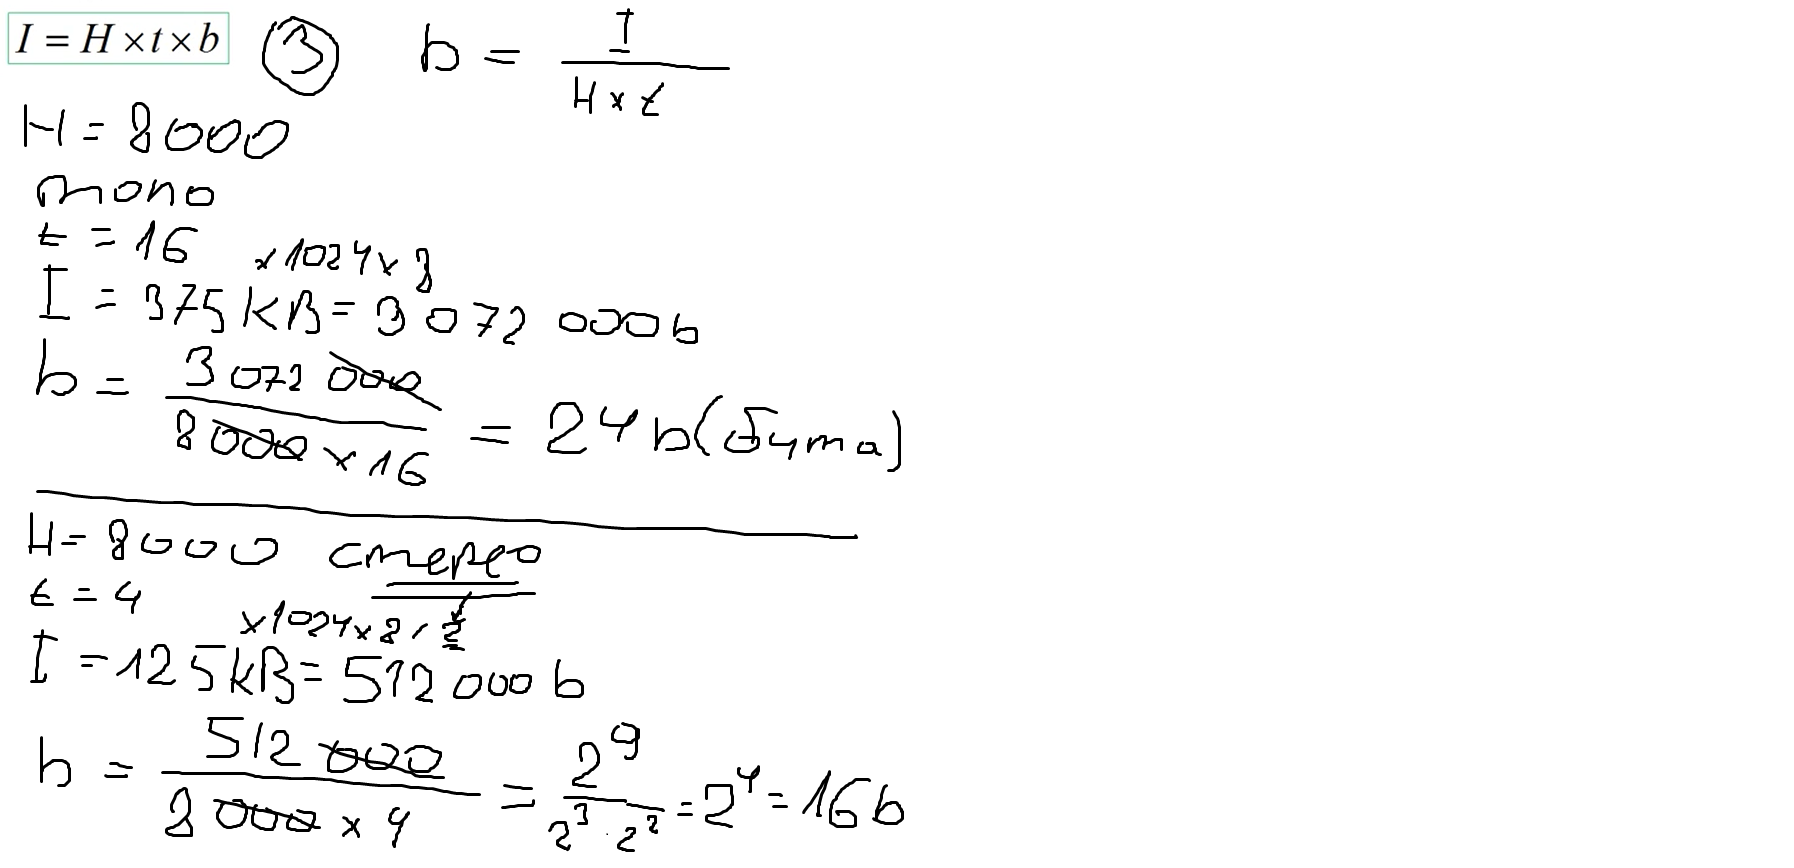 I = H × t × b ③ b = I / H × t
H = 8000
mono
t = 16
× 1024 × 8
I = 375 KB = 3 072 000 b
b = 3 072 000 / 8 000 × 16 = 24 b (бита)
H = 8000 стерео
t = 4
× 1024 × 8 / 2
I = 125 KB = 512 000 b
b = 512 000 / 8 000 × 4 = 2⁹ / 2³ · 2² = 2⁴ = 16 b